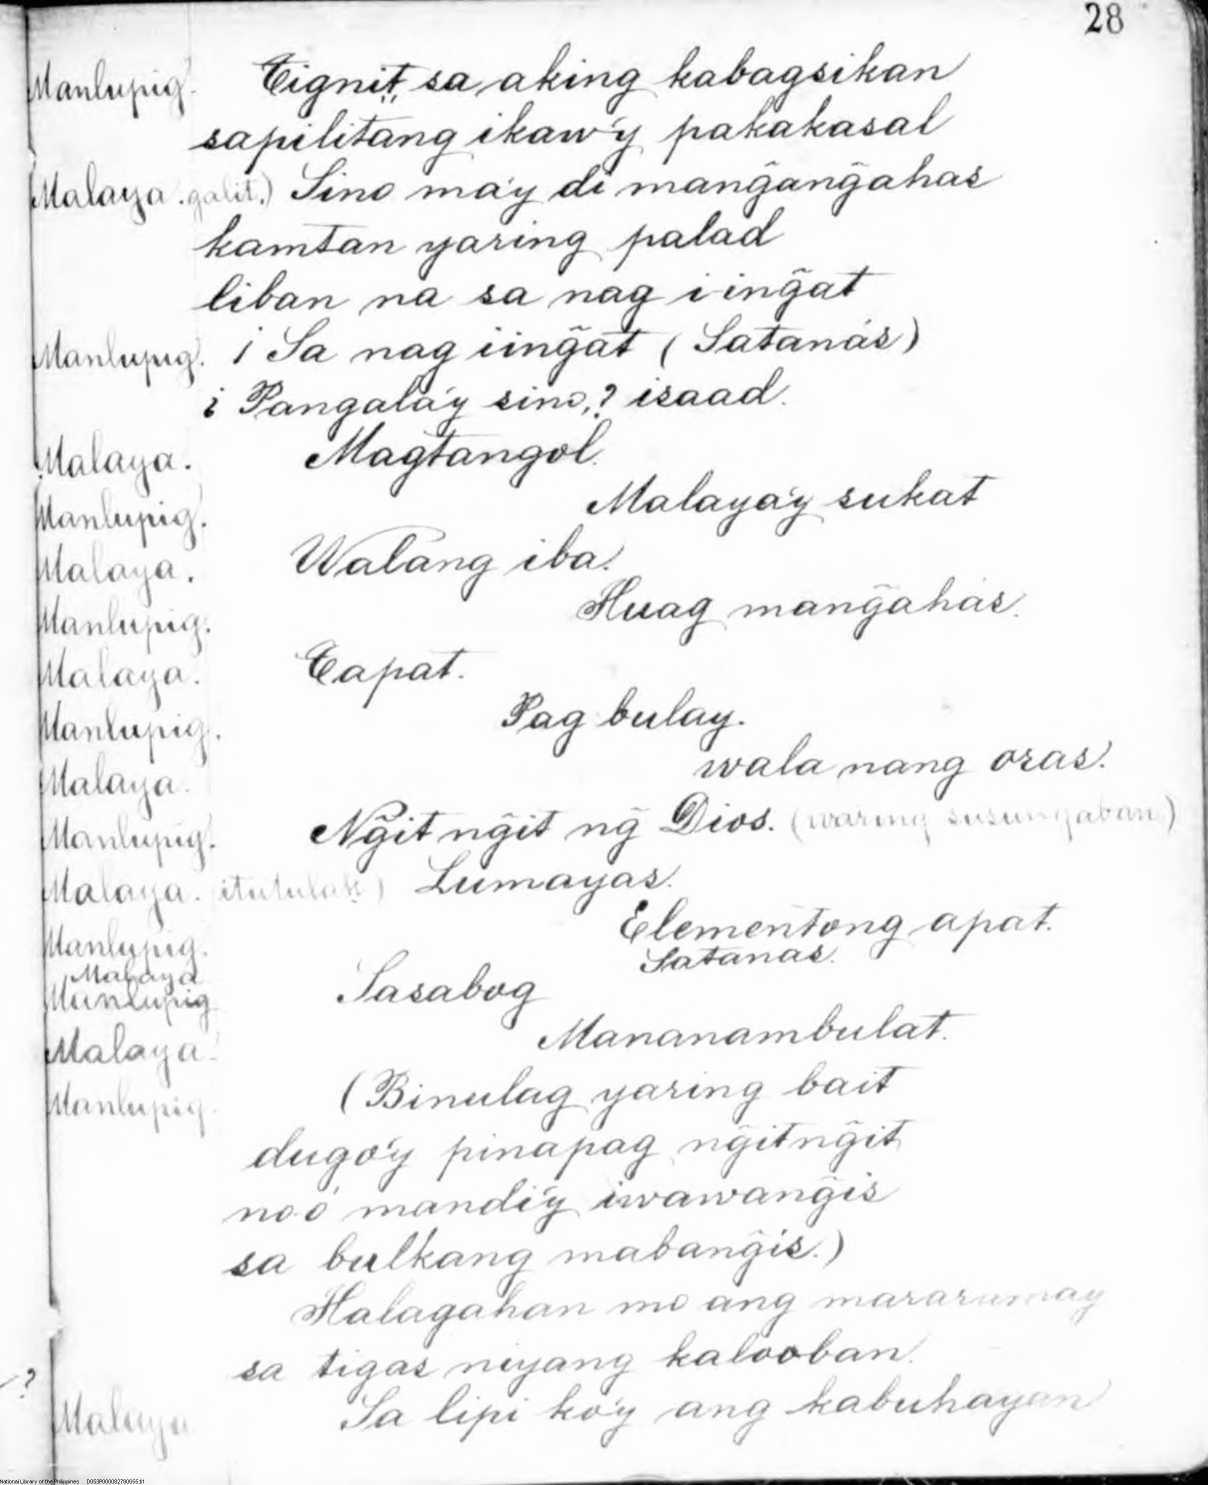 28
Manlupig. Tignit sa aking kabagsikan
sapilitang ikaw'y pakakasal
Malaya. galit.) Sino ma'y di mang̃ang̃ahas
kamtan yaring palad
liban na sa nag i-ing̃at
Manlupig. ¡ Sa nag iing̃at (Satanás)
¿ Pangala'y sino,? isaad.
Malaya. Magtangol.
Manlupig. Malaya'y sukat
Malaya. Walang iba.
Manlupig. Huag mang̃ahás.
Malaya. Tapat.
Manlupig. Pag bulay.
Malaya. wala nang oras.
Manlupig. Ng̃it ng̃it ng̃ Dios. (waring susungaban)
Malaya. (itutulak) Lumayas.
Manlupig. Elementong apat.
Malaya Satanas.
Manlupig Sasabog
Malaya. Mananambulat.
Manlupig. (Binulag yaring bait
dugo'y pinapag ng̃itng̃it
noó mandi'y iwawang̃is
sa bulkang mabang̃is.)
Halagahan mo ang mararumay
sa tigas niyang kalooban.
?
Malaya Sa lipi ko'y ang kabuhayan
National Library of the Philippines